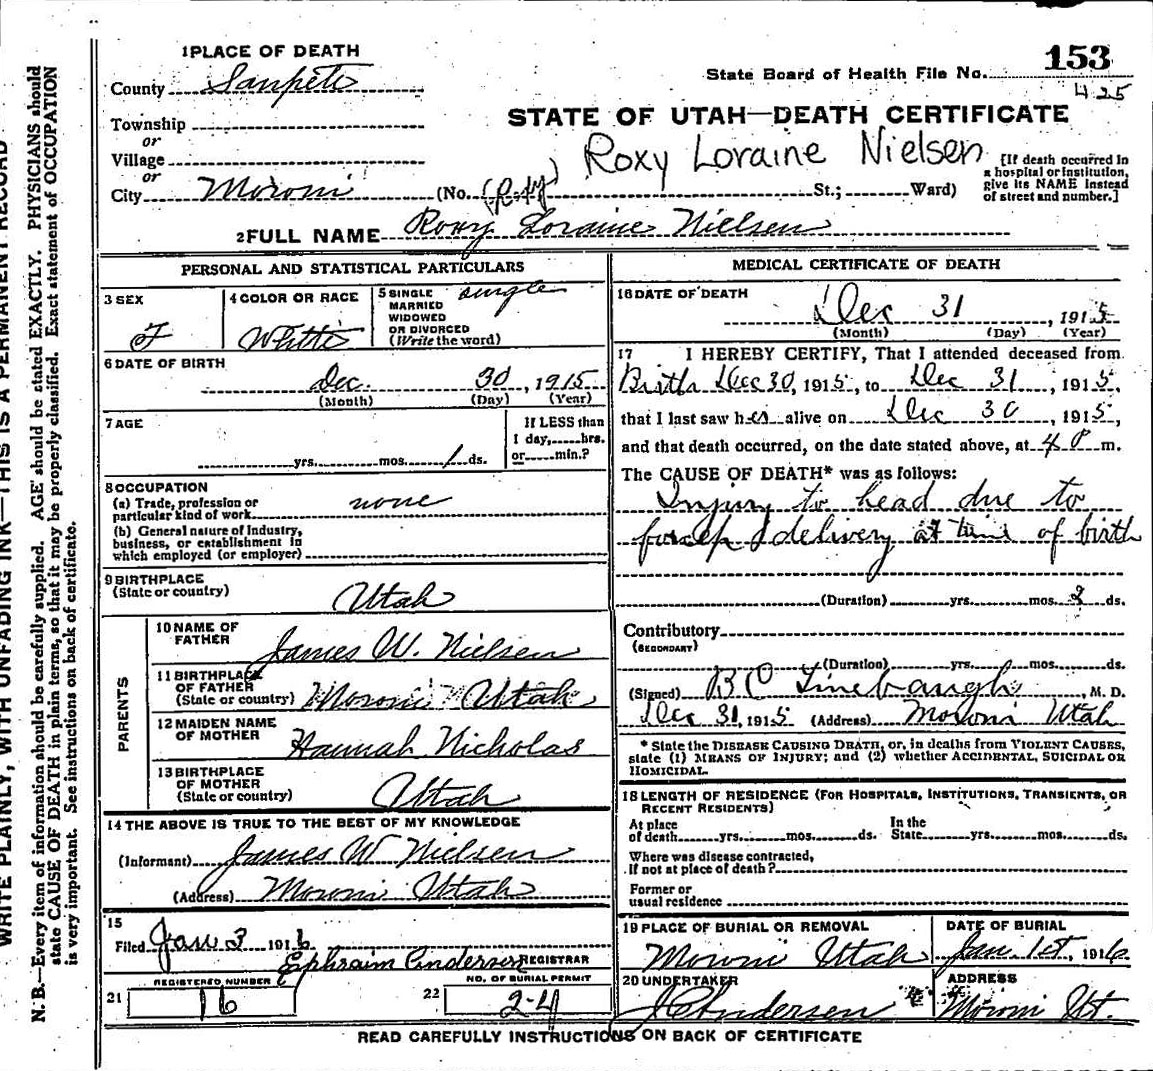 153
State Board of Health File No.
425
1 PLACE OF DEATH
County Sanpete
STATE OF UTAH—DEATH CERTIFICATE
Township
or
Village
or
City Moroni (No. St.; Ward)
Roxy Loraine Nielsen
(Roxy)
[If death occurred in
a hospital or institution,
give its NAME instead
of street and number.]
2 FULL NAME Roxy Loraine Nielsen
PERSONAL AND STATISTICAL PARTICULARS
3 SEX
F
4 COLOR OR RACE
White
5 SINGLE
MARRIED
WIDOWED
OR DIVORCED
(Write the word)
single
6 DATE OF BIRTH
Dec. 30, 1915
(Month) (Day) (Year)
7 AGE
yrs. mos. 1 ds.
If LESS than
1 day, hrs.
or min.?
8 OCCUPATION
(a) Trade, profession or
particular kind of work none
(b) General nature of industry,
business, or establishment in
which employed (or employer)
9 BIRTHPLACE
(State or country)
Utah
PARENTS
10 NAME OF
FATHER
James W. Nielsen
11 BIRTHPLACE
OF FATHER
(State or country) Moroni Utah
12 MAIDEN NAME
OF MOTHER
Hannah Nicholas
13 BIRTHPLACE
OF MOTHER
(State or country) Utah
14 THE ABOVE IS TRUE TO THE BEST OF MY KNOWLEDGE
(Informant) James W Nielsen
(Address) Moroni Utah
15
Filed Jan 3 1916
Ephraim Anderson REGISTRAR
REGISTERED NUMBER
21 16
NO. OF BURIAL PERMIT
22 2-4
MEDICAL CERTIFICATE OF DEATH
16 DATE OF DEATH
Dec 31, 1915
(Month) (Day) (Year)
17 I HEREBY CERTIFY, That I attended deceased from
Birth Dec 30, 1915, to Dec 31, 1915,
that I last saw her alive on Dec 30, 1915,
and that death occurred, on the date stated above, at 4 P m.
The CAUSE OF DEATH* was as follows:
Injury to head due to
forcep delivery at time of birth
(Duration) yrs. mos. 2 ds.
Contributory
(SECONDARY)
(Duration) yrs. mos. ds.
(Signed) B C Linebaugh, M. D.
Dec 31, 1915 (Address) Moroni Utah
* State the DISEASE CAUSING DEATH, or, in deaths from VIOLENT CAUSES,
state (1) MEANS OF INJURY; and (2) whether ACCIDENTAL, SUICIDAL OR
HOMICIDAL.
18 LENGTH OF RESIDENCE (FOR HOSPITALS, INSTITUTIONS, TRANSIENTS, OR
RECENT RESIDENTS)
At place
of death yrs. mos. ds.
In the
State yrs. mos. ds.
Where was disease contracted,
if not at place of death?
Former or
usual residence
19 PLACE OF BURIAL OR REMOVAL
Moroni Utah
DATE OF BURIAL
Jan. 1st, 1916
20 UNDERTAKER
J C Andersen
ADDRESS
Moroni Ut.
READ CAREFULLY INSTRUCTIONS ON BACK OF CERTIFICATE
WRITE PLAINLY, WITH UNFADING INK—THIS IS A PERMANENT RECORD
N. B.—Every item of information should be carefully supplied. AGE should be stated EXACTLY. PHYSICIANS should
state CAUSE OF DEATH in plain terms, so that it may be properly classified. Exact statement of OCCUPATION
is very important. See instructions on back of certificate.